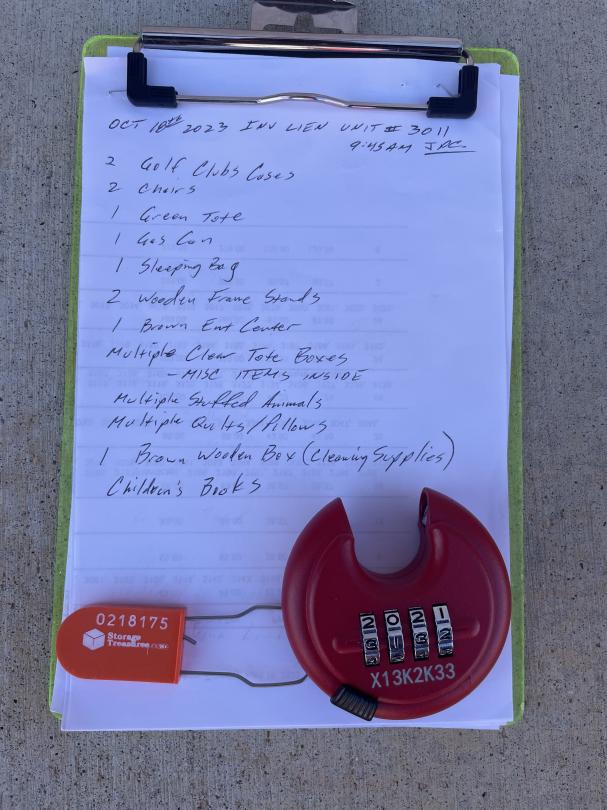 OCT 10th 2023 INV LIEN UNIT # 3011
9:45AM JDC
2 Golf Clubs Cases
2 Chairs
1 Green Tote
1 Gas Can
1 Sleeping Bag
2 Wooden Frame Stands
1 Brown Ent Center
Multiple Clear Tote Boxes
- MISC ITEMS INSIDE
Multiple Stuffed Animals
Multiple Quilts/Pillows
1 Brown Wooden Box (Cleaning Supplies)
Children's Books
0218175
Storage
Treasures.com
X13K2K33